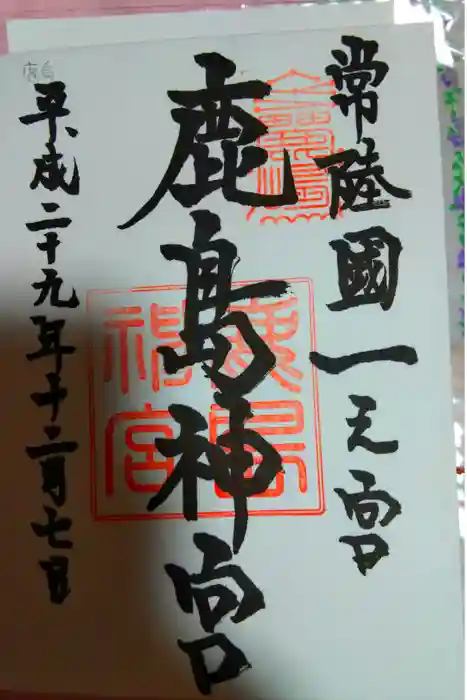 常陸國一之宮
鹿島神宮
平成二十九年十二月七日
鹿島
神宮